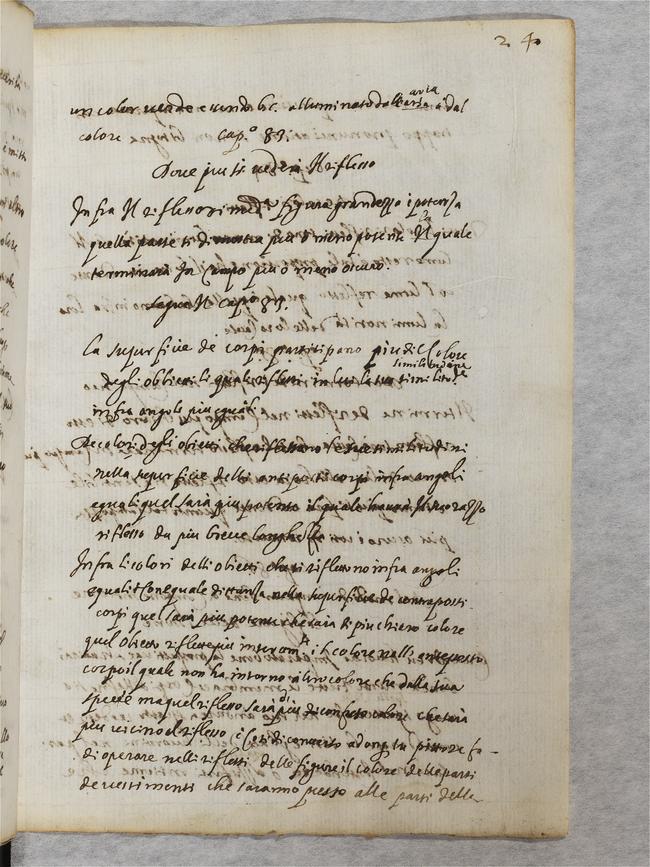 24
un color uerde e uerdo &c. alluminato dall aria e dal
colore Cap.º 83.
Doue piu si uederà Il riflesso
Infra Il riflesso figura grandezzo i potenza
quella parte si dimostra piu o meno potente Il quale
terminarà In Campo piu o meno oscuro.
Segue Il Capº 83.
La superficie de corpi partitipano piu di Colore
similitudine
degli obbietti li quali riflettono in lui la sua
infra angoli piu eguali
De colori degli obietti che riflettano le sue similitudini
nella superficie delli antiposti corpi infra angoli
eguali quel sarà piu potente il quale hauerà Il suo razzo
riflesso da piu breue longhezza
Infra li colori delli obietti che si riflettono infra angoli
equali e Con equale distanza nella superficie de contraposti
corpi quel sarà piu potente che sarà di piu chiaro colore
quel Obietto riflette piu il colore nello anteposto
corpo il quale non ha intorno altro colore che dalla sua
spetie ma quel riflesso sarà di piu di confuso colore che sarà
piu uicino al riflesso adonq tu pittore fa
di operare nelli riflessi delle figure il colore delle parti
de uestimenti che saranno presso alle parti delle